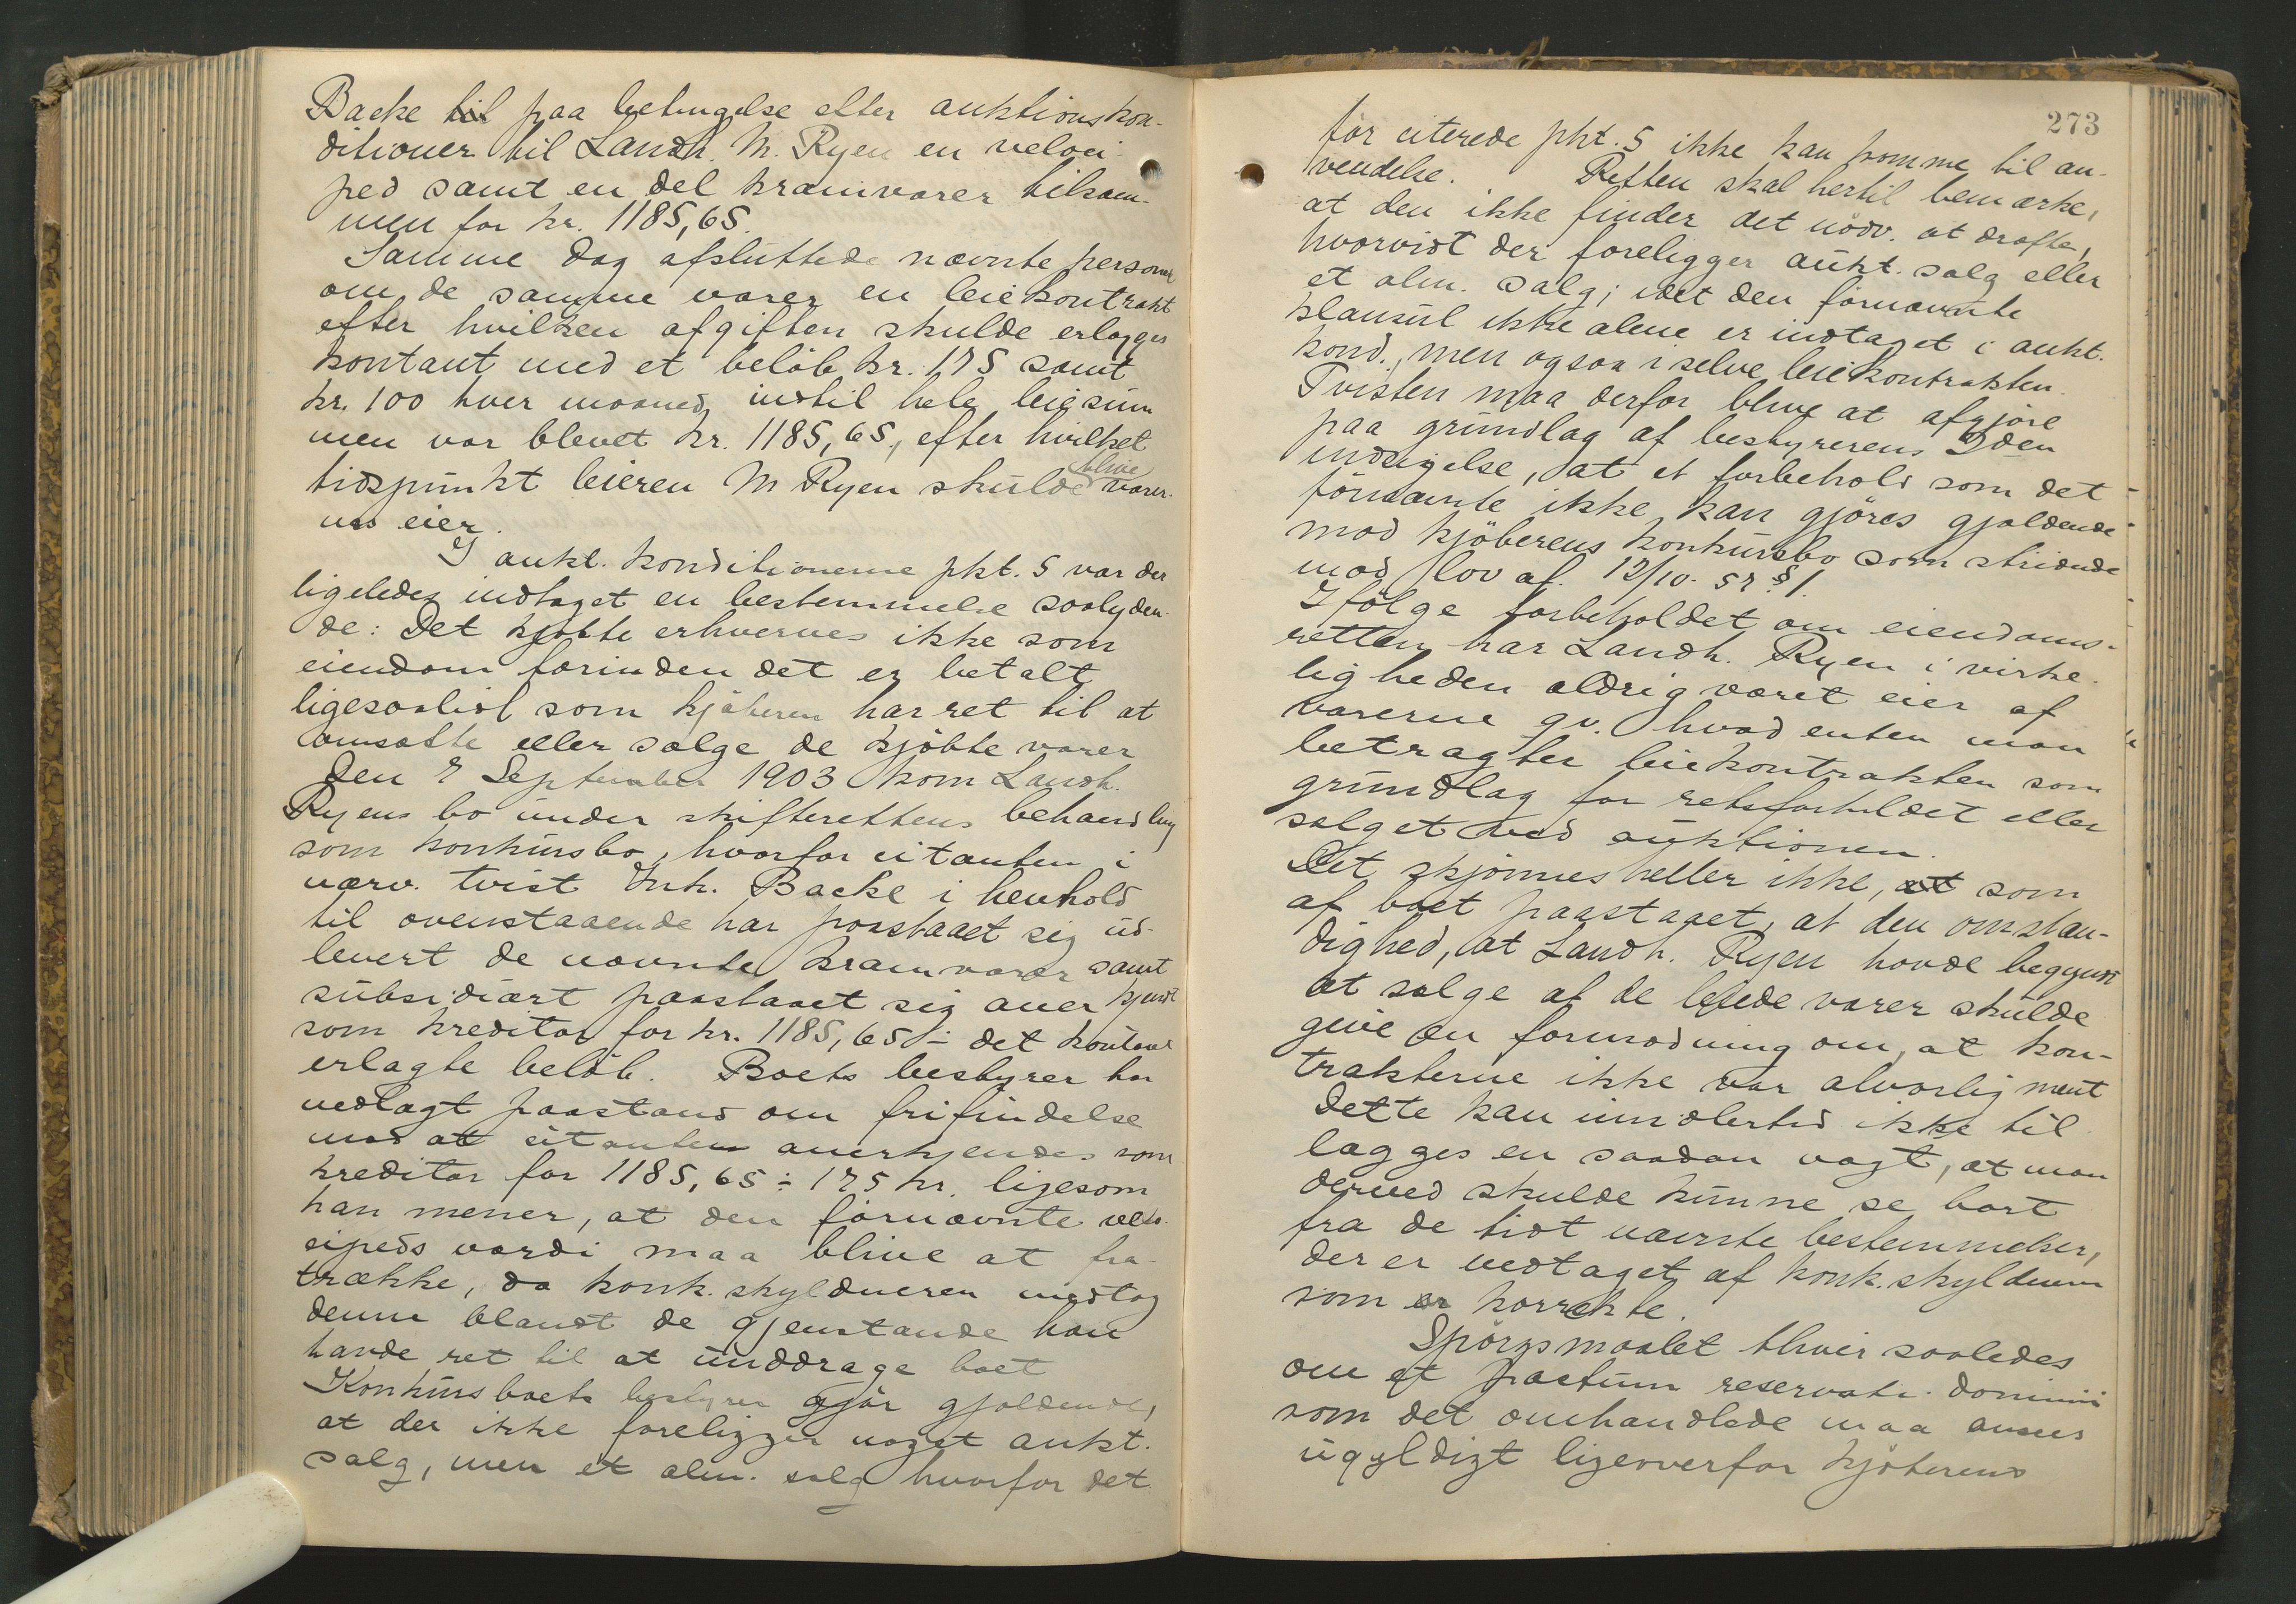 Backe til paa betingelse efter auktionskon-
ditioner til Landh. M. Ryen en veloci-
ped samt en del kramvarer tilsam-
men for kr. 1185,65.
Samme dag afsluttede nævnte personer
om de samme varer en leiekontrakt
efter hvilken afgiften skulde erlægges
kontant med et beløb kr. 175 samt
kr. 100 hver maaned, indtil hele leiesum
men var blevet kr. 1185,65, efter hvilket
blive
tidspunkt leieren M Ryen skulde varer-
nes eier.
I aukt. konditionerne pkt. 5 var der
ligeledes indtaget en bestemmelse saalyden-
de: Det kjøbte erhverves ikke som
eiendom forinden det er betalt,
ligesaalidt som kjøberen har ret til at
omsætte eller sælge de kjøbte varer
Den 7 September 1903 kom Landh.
Ryens bo under skifterettens behandling
som konkursbo, hvorfor citanten i
nærv. tvist Backe i henhold
til ovenstaaende har paastaaet sig ud-
levert de nævnte kramvarer samt
subsidiært paastaaet sig aner kjendt
som kreditor for kr. 1185,65 ÷ det kontant
erlagte beløb. Boets bestyrer har
nedlagt paastand om frifindelse
mod at citanten anerkjendes som
kreditor for 1185,65 ÷ 175 kr. ligesom
han mener, at den førnævnte velo-
cipeds værdi maa blive at fra-
trække, da konk. skyldneren medtog
denne blandt de gjenstande han
havde ret til at unddrage boet
Konkursboets bestyrer gjør gjældende,
at der ikke foreligger noget aukt.
salg, men et alm. salg hvorfor det
273
før citerede pkt. 5 ikke kan komme til an-
vendelse. Retten skal hertil bemærke,
at den ikke finder det nødv. at drøfte,
hvorvidt der foreligger aukt. salg eller
et alm. salg; idet den førnævnte
klausul ikke alene er indtaget i aukt.
kond., men ogsaa i selve leiekontrakten.
Tvisten maa derfor blive at afgjøre
paa grundlag af bestyrerens
indsigelse, at et forbehold som det
førnævnte ikke kan gjøres gjældende
mod kjøberens konkursbo som stridende
mod lov af. 12/10. 57 § 1.
Ifølge forbeholdet om eiendoms-
retten har Landh. Ryen i virke-
ligheden aldrig været eier af
varerne qv. hvad enten man
betragter leiekontrakten som
grundlag for retsforholdet eller
salget ved auktionen.
Det skjønnes heller ikke, at som
af boet paastaaet, at den omstæn-
dighed, at Landh. Ryen havde begyndt
at sælge af de leiede varer skulde
give en formodning om, at kon-
trakterne ikke var alvorlig ment
Dette kan imidlertid ikke til
lægges en saadan vægt, at man
derved skulde kunne se bort
fra de tidt nævnte bestemmelser,
der er vedtaget af konk. skyldneren
som er korrekte.
Spørgsmaalet bliver saaledes
om et pactum reservati dominii
som det omhandlede maa ansees
ugyldigt ligeoverfor kjøberens